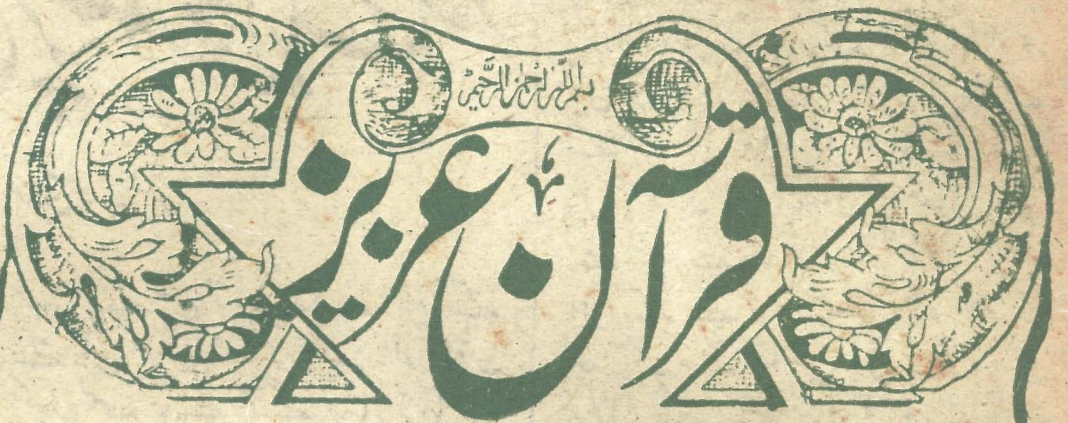 بسم الله الرحمن الرحيم
قرآن عزيز